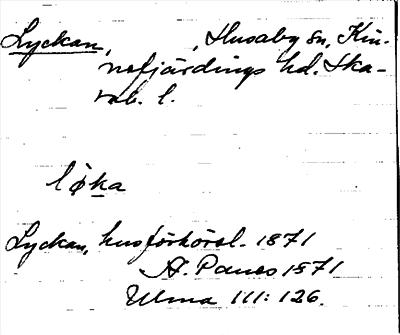 Lyckan, , Husaby sn, Kin-
nefjärdings hd. Ska-
rab. l.
løka
Lyckan, husförhörsl. 1871
A. Panes 1871
Ulma 111: 126.